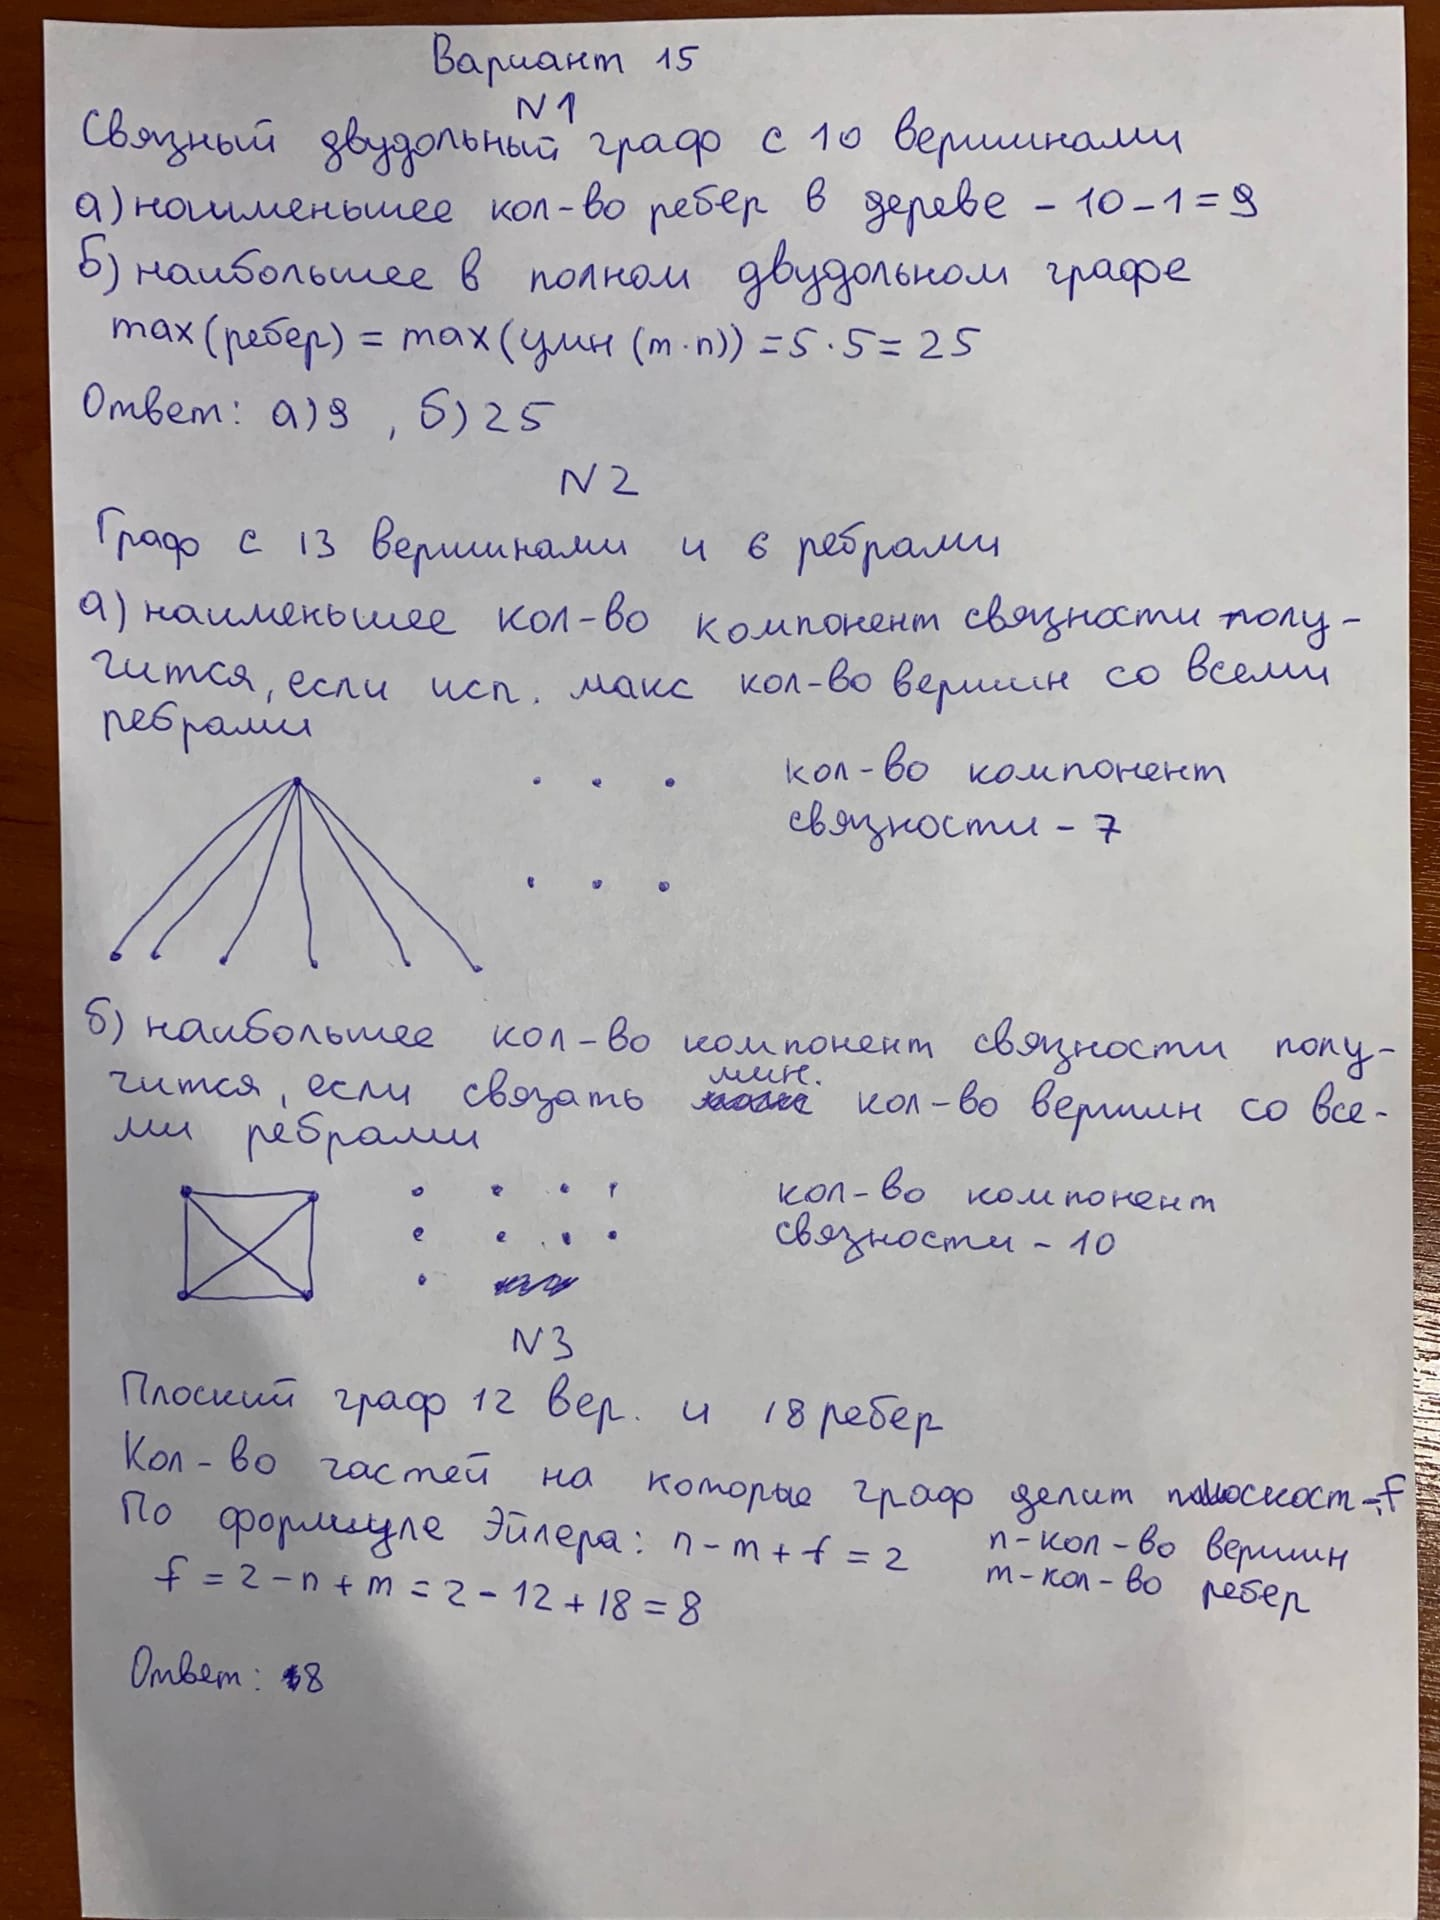 Вариант 15
N1
Связный двудольный граф с 10 вершинами
а) наименьшее кол-во ребер в дереве - 10-1=9
Б) наибольшее в полном двудольном графе
max(ребер) = max(умн (m·n)) = 5·5 = 25
Ответ: а) 9 , б) 25
N2
Граф с 13 вершинами и 6 ребрами
а) наименьшее кол-во компонент связности полу-
чится, если исп. макс кол-во вершин со всеми
ребрами
кол-во компонент
связности - 7
б) наибольшее кол-во компонент связности полу-
чится, если связать мин. кол-во вершин со все-
ми ребрами
кол-во компонент
связности - 10
N3
Плоский граф 12 вер. и 18 ребер
Кол-во частей на которые граф делит плоскост - f
По формуле Эйлера: n - m + f = 2
n - кол-во вершин
m - кол-во ребер
f = 2 - n + m = 2 - 12 + 18 = 8
Ответ: 8